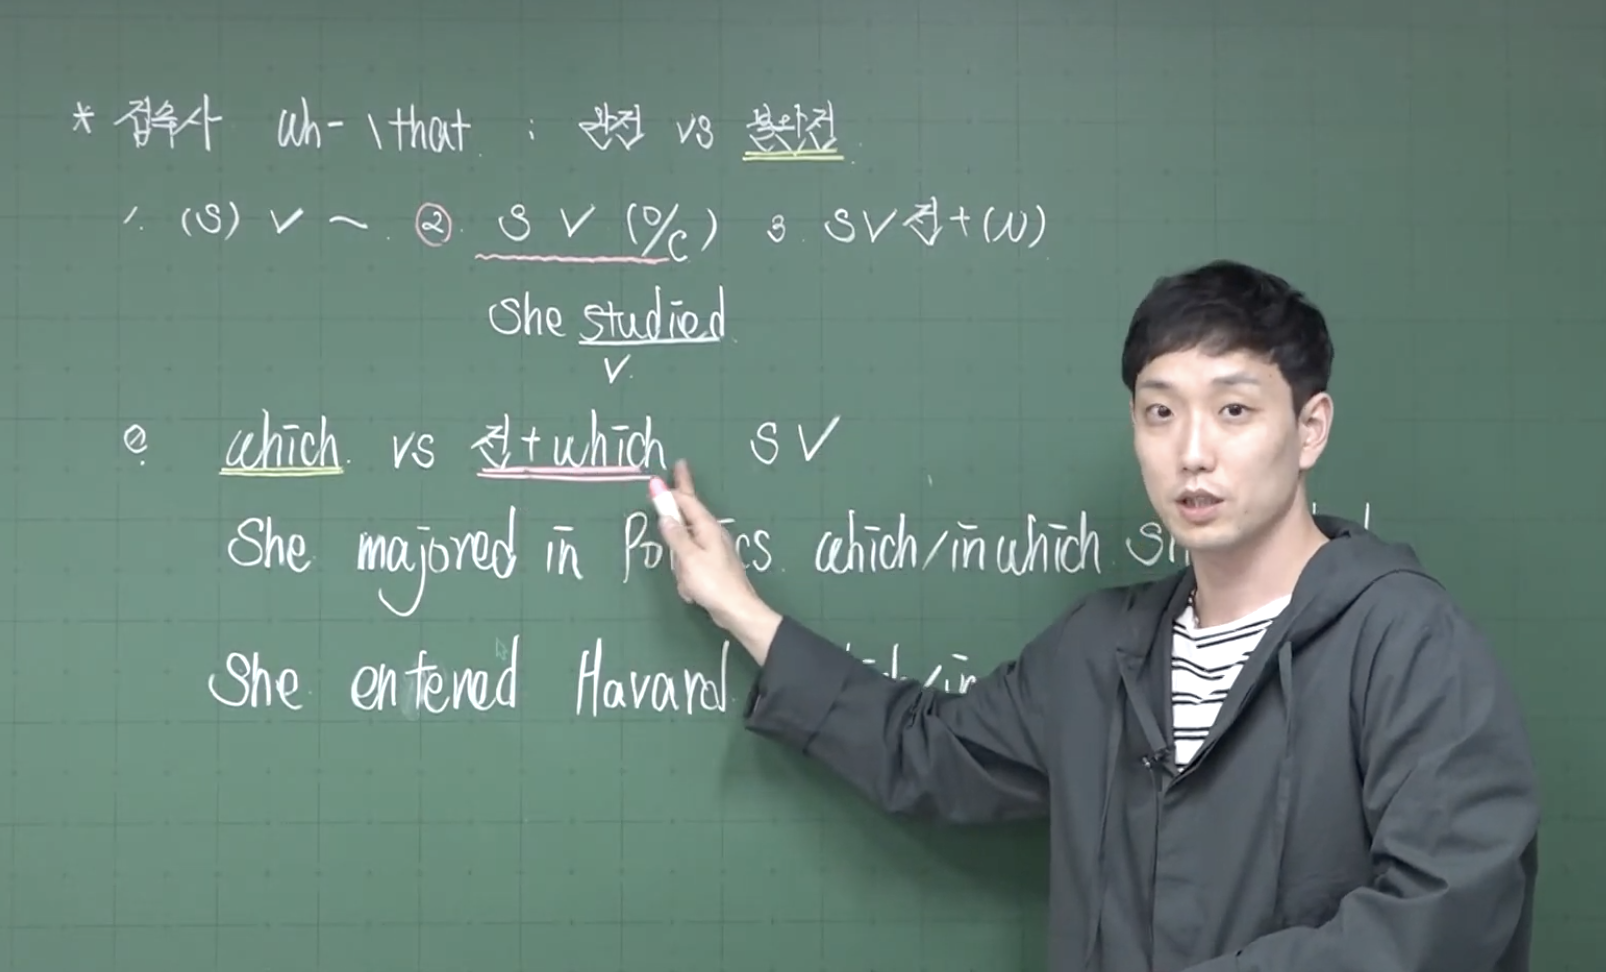 * 접속사 wh- \ that : 완전 vs 불완전
1. (S) V ~ ② S V (O/C) 3. S V 전+(N)
She studied
V.
Q. which vs 전+which S V
She majored in which/in which
She entered Havard